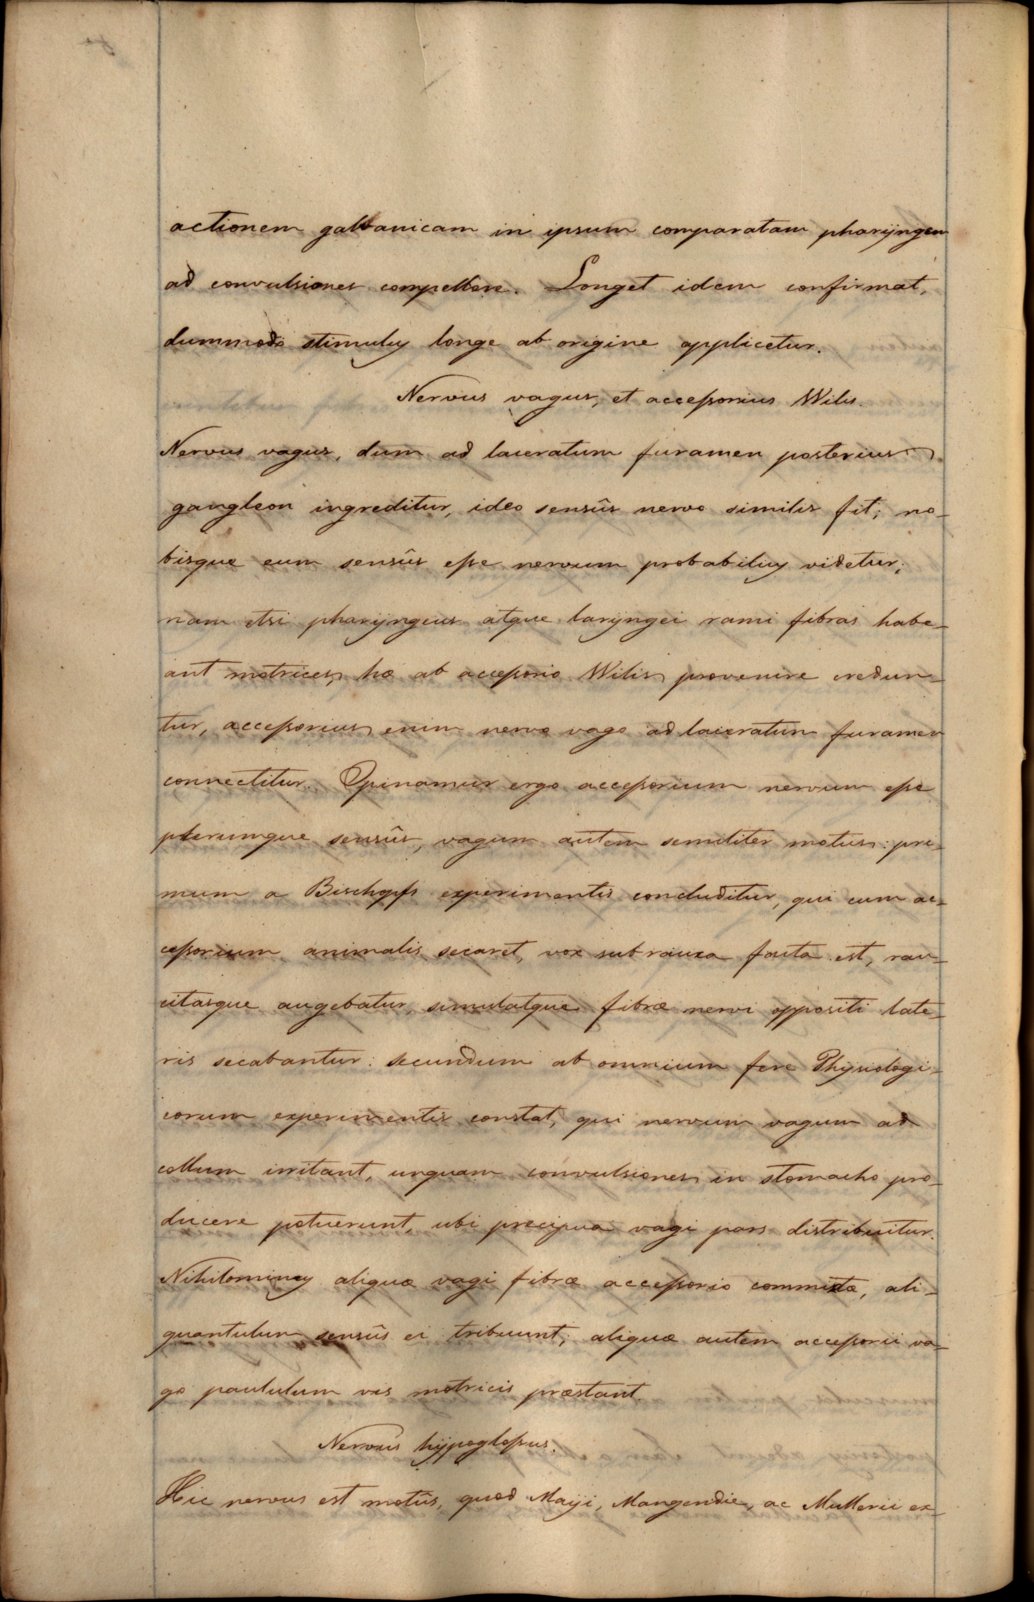 actionem galvanicam in ipsum comparatam pharyngem
ad convulsiones compellere. Longet idem confirmat,
dummodo stimulus longe ab origine applicetur.
Nervus vagus, et accessorius Wilis.
Nervus vagus, dum ad laceratum furamen posterius
gangleon ingreditur, ideo sensûs nervo similis fit; no-
bisque eum sensûs esse nervum probabilius videtur;
nam etsi pharyngeus atque laryngei rami fibras habe-
ant motrices, hæ ab accessorio Wilis provenire credun-
tur, accessorius enim nervo vago ad laceratum furamen
connectitur. Opinamur ergo accessorium nervum esse
plerumque sensûs, vagum autem semiliter motus: pri-
mum a Bischoffs experimentis concluditur, qui cum ac-
cessorium animalis secaret, vox subrauca facta est, rau-
citasque augebatur, simulatque fibræ nervi oppositi late-
ris secabantur: secundum ab omnium fere Physiologi-
corum experimentis constat, qui nervum vagum ad
collum irritant, unquam convulsiones in stomacho pro-
ducere potuerunt, ubi precipua vagi pars distribuitur.
Nihilominus aliquæ vagi fibræ accessorio commixtæ, ali-
quantulum sensûs ei tribuunt; aliquæ autem accessorii va-
go paululum vis motricis præstant.
Nervus hypoglossus.
Hic nervus est motûs, quod Mayi, Mangendie, ac Mullerii ex-